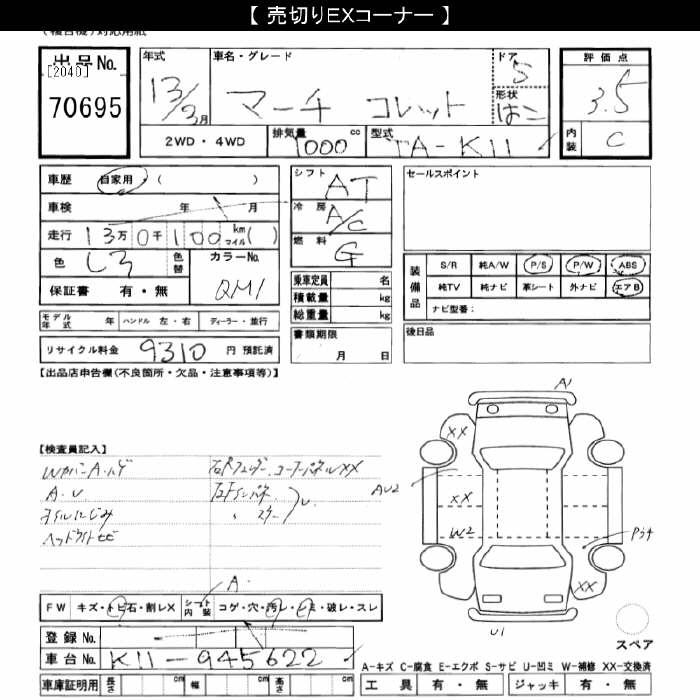 【 売切りEXコーナー 】
出品No.
[2040]
70695
年式
13/3月
車名・グレード
マーチ コレット
ドア
5
形状
はこ
評価点
3.5
内装
C
2WD・4WD
排気量 1000 cc
型式 TA-K11
車歴 自家用・( )
車検 年 月
走行 13万0千100 km マイル( )
色 シロ 色替
カラーNo. QM1
保証書 有・無
シフト AT
冷房 A/C
燃料 G
乗車定員 名
積載量 kg
総重量 kg
書類期限
月 日
セールスポイント
装備品
S/R 純A/W P/S P/W ABS
純TV 純ナビ 革シート 外ナビ エアB
ナビ型番:
後日品
モデル年式 年 ハンドル 左・右 ディーラー・並行
リサイクル料金 9310 円 預託済
【出品店申告欄(不良箇所・欠品・注意事項等)】
【検査員記入】
A.U
オイルにじみ
ヘッドライトヒビ
A1
XX
XX
AU2
W2
XX
U1
スペア
A.
FW キズ・トビ石・割レX
シート内装 コゲ・穴・汚レ・シミ・破レ・スレ
登録No.
車台No. K11-945622
車庫証明用 長さ cm 幅 cm 高さ cm
A-キズ C-腐食 E-エクボ S-サビ U-凹ミ W-補修 XX-交換済
工具 有・無 ジャッキ 有・無